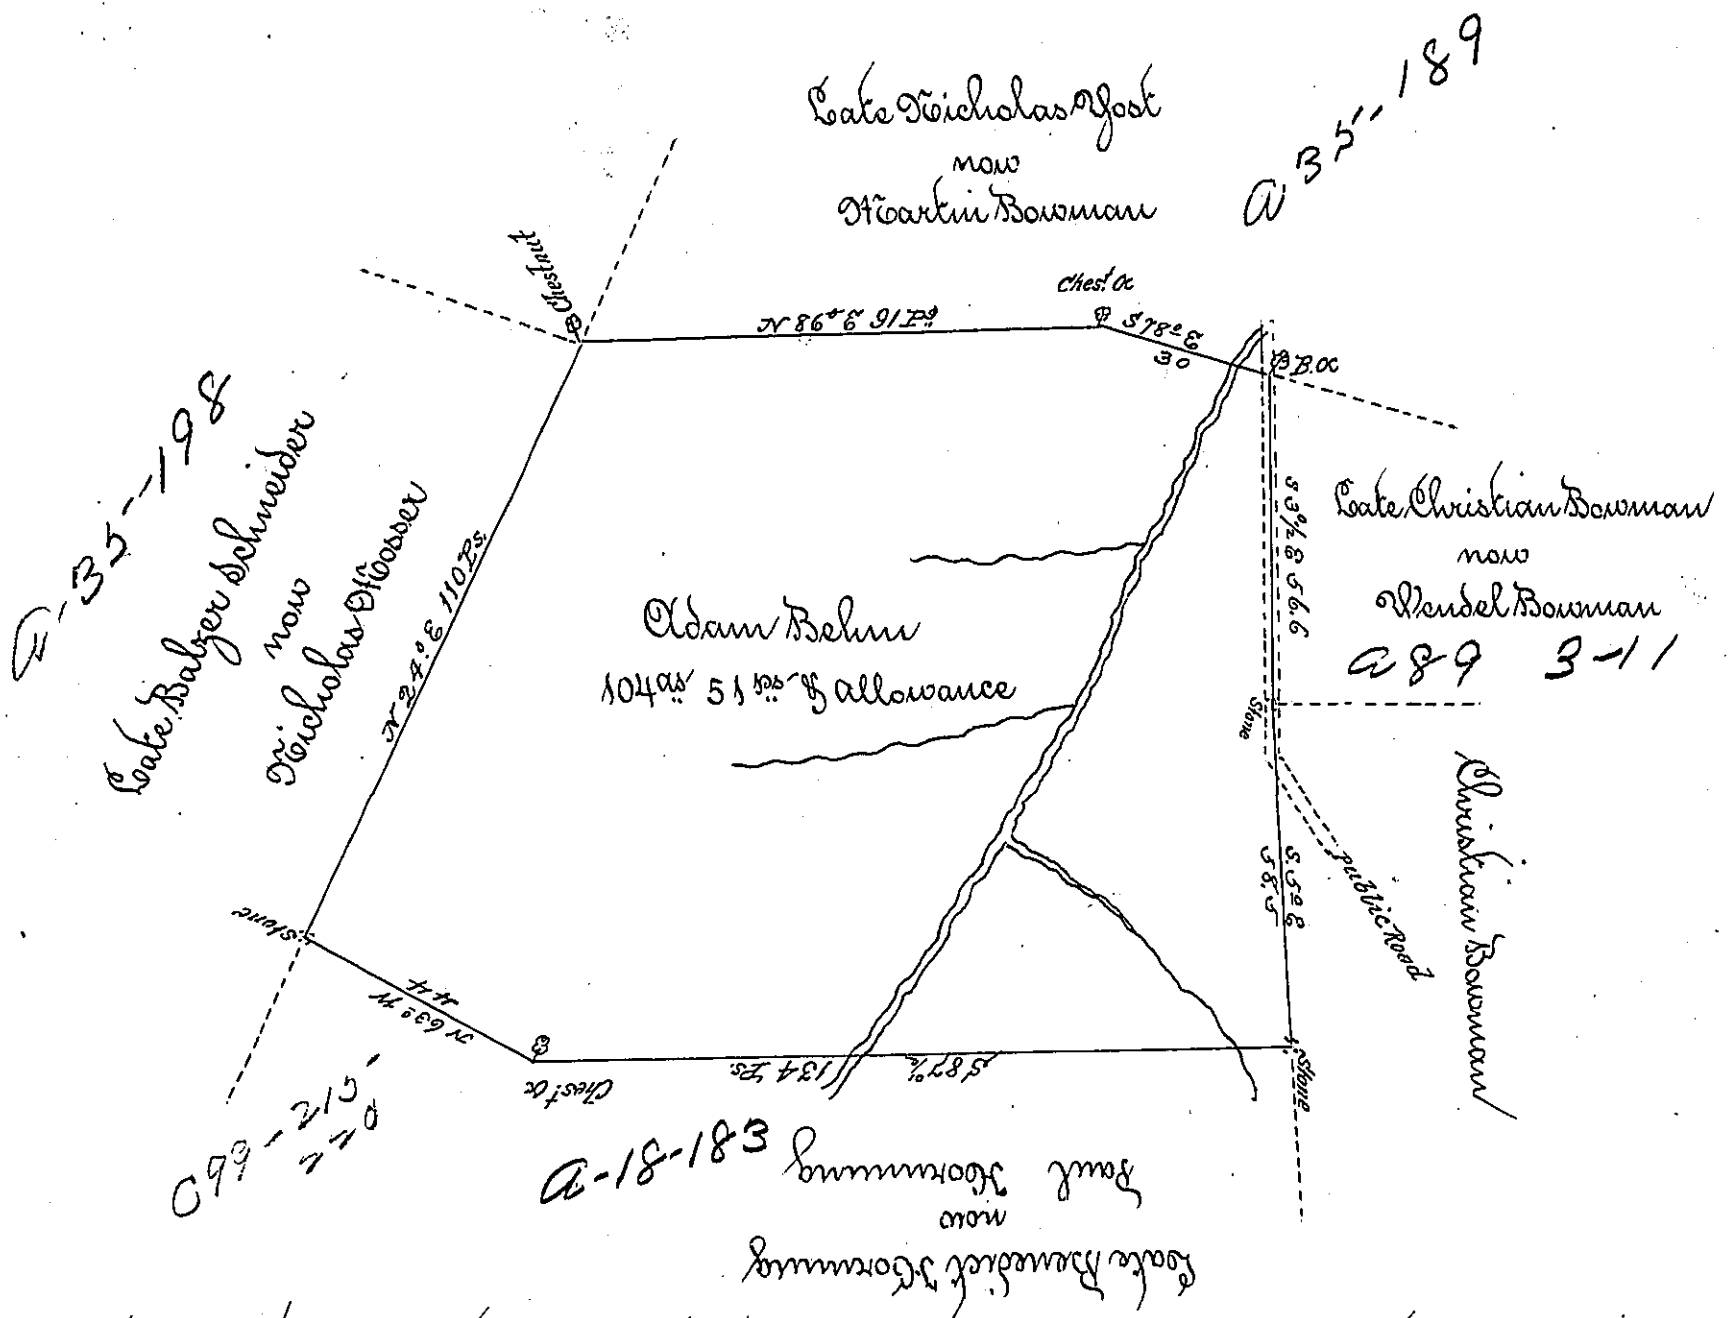 Late Nicholas Yost
now
Martin Bowman
A 35-189
Chestnut
Chest. Oc
N 86° 3 91
S 78° E
30
B. Oc
A-35-198
Late Balzer Schneider
now
Nicholas Mosser
N 24° E 110 Ps.
Adam Behm
104 as 51 & allowance
S 3°½ E 56.6
Late Christian Bowman
now
Wendel Bowman
A 89 3-11
Stone
Christian Bowman
S. 5° E
58.5
Public Road
Stone
N 63° W
44
Chest Oc
134 Ps.
S 87°½
Stone
C 99-215
A-81-183
Late Benedict Hornung
now
Paul Hornung